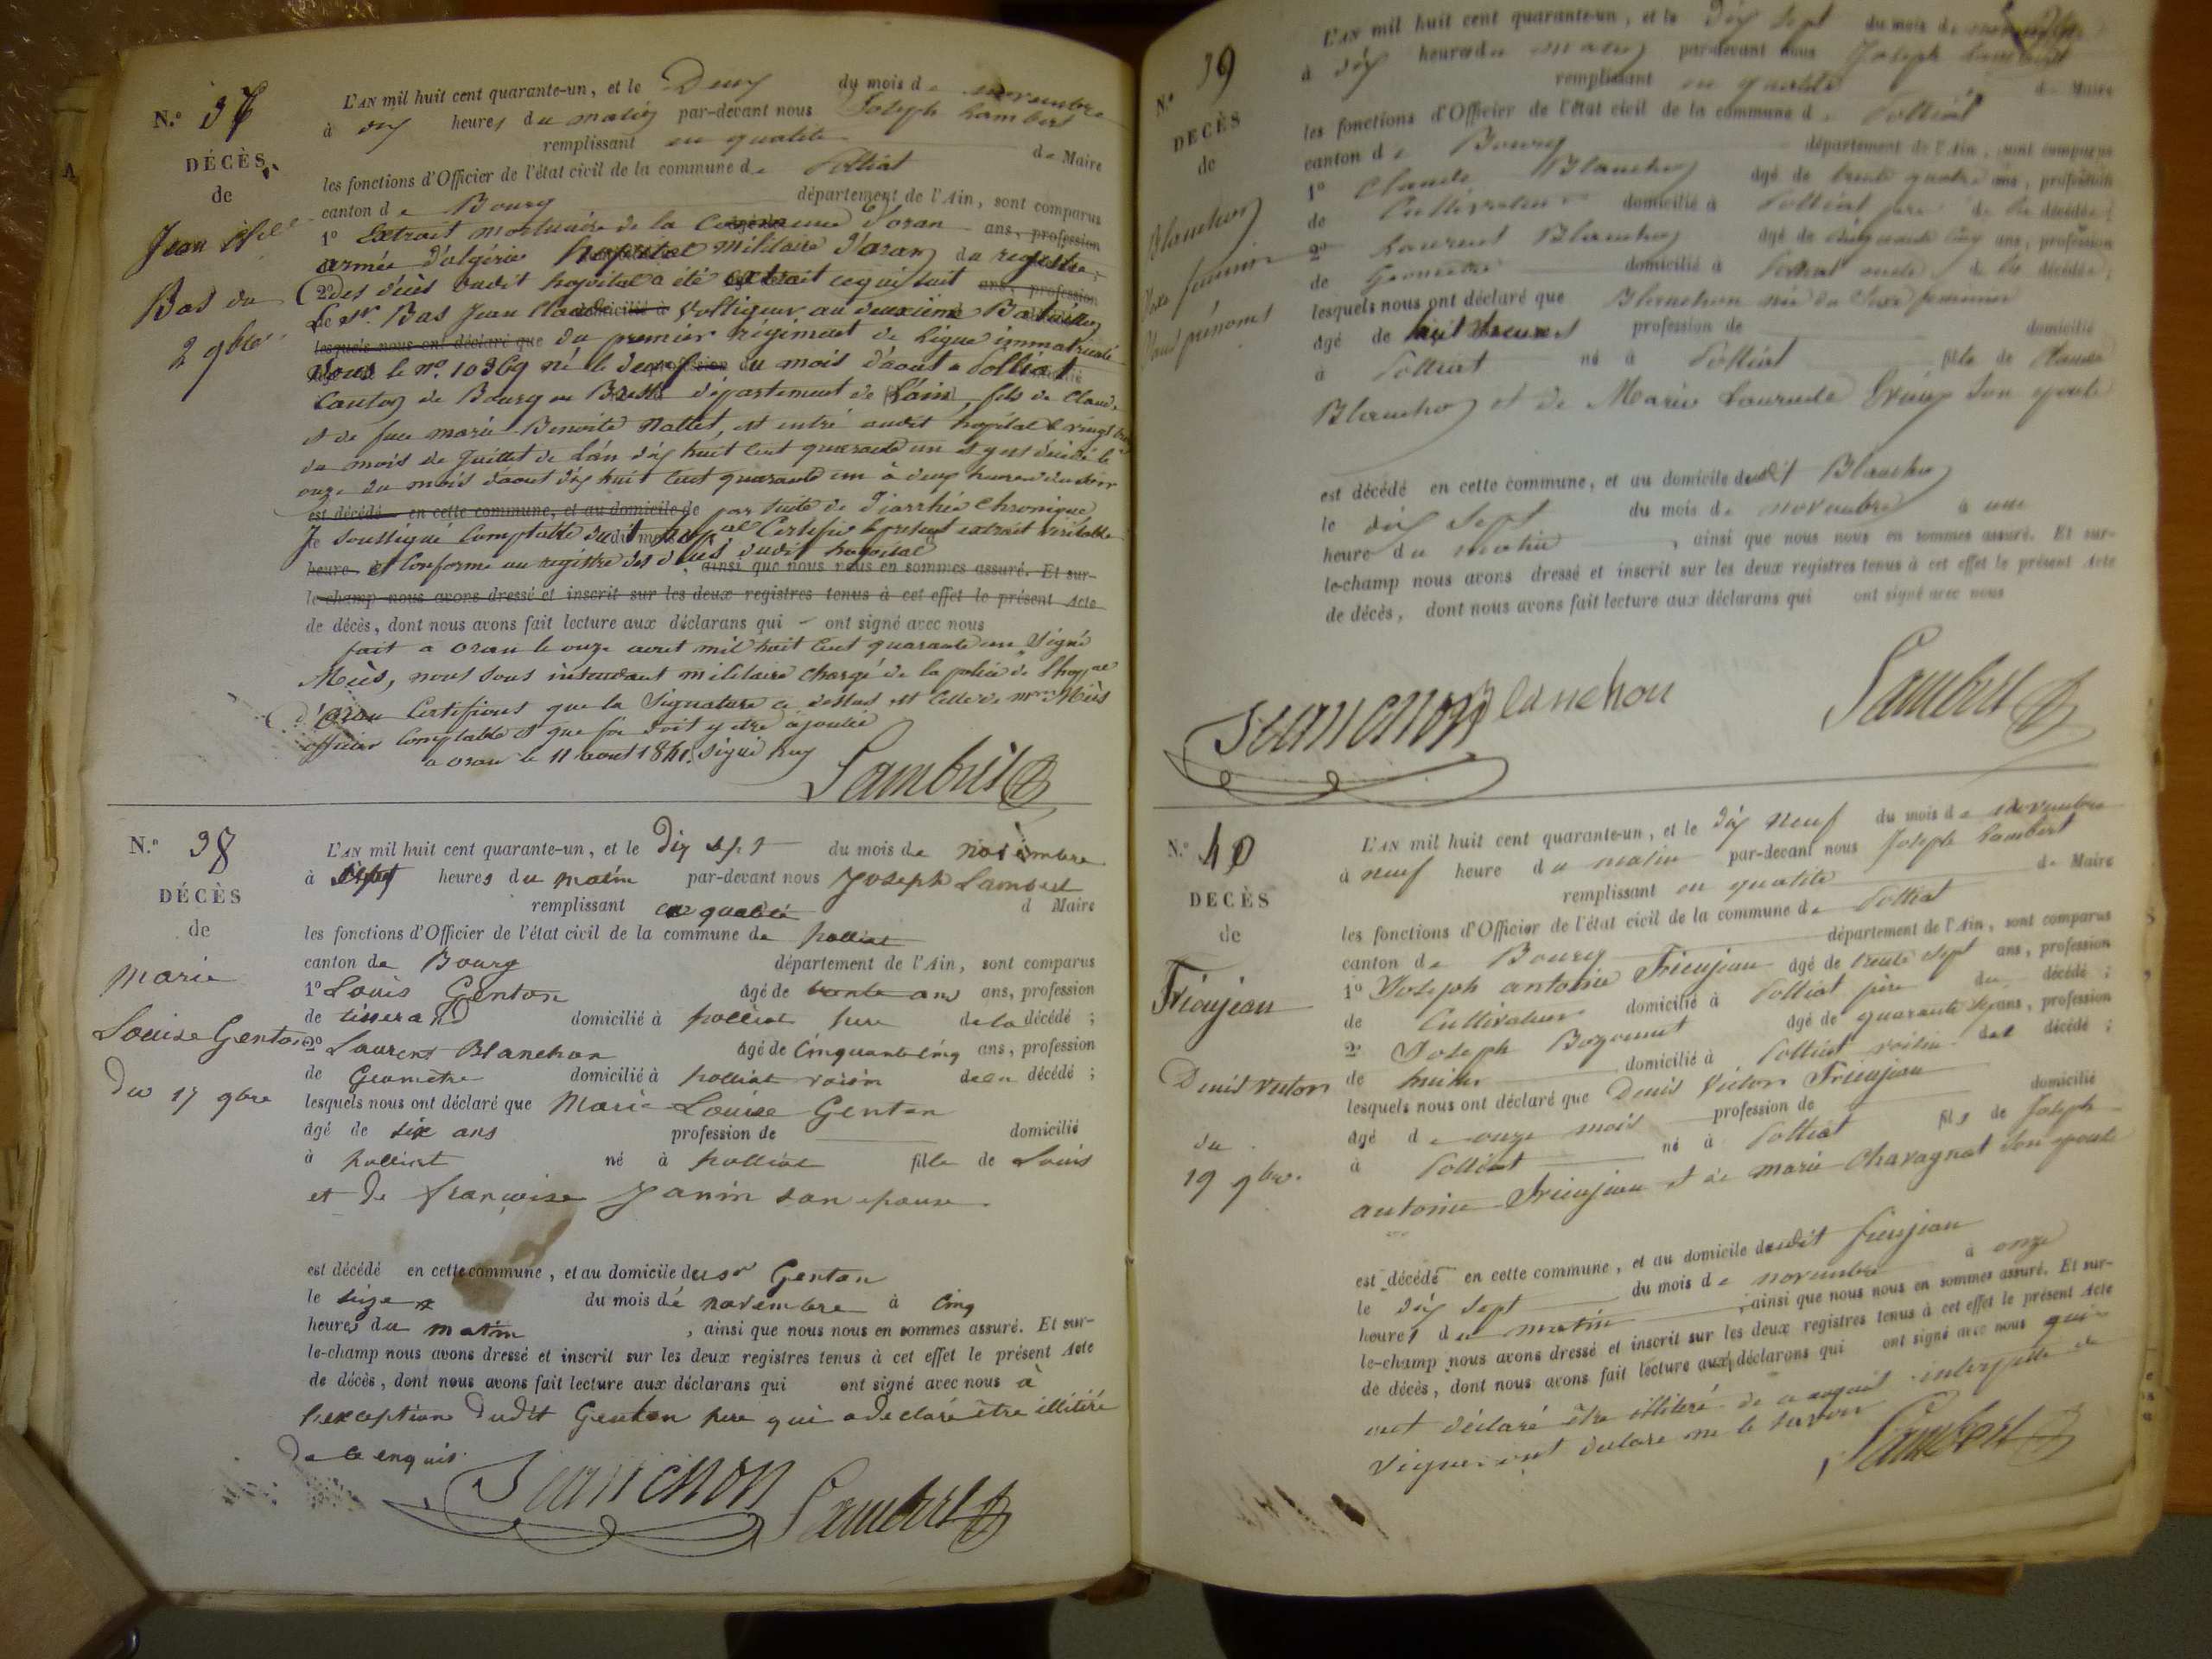 N.º 37
DÉCÈS
de
Jean
Bas du
2 9bre
L'AN mil huit cent quarante-un, et le Deux du mois de novembre
à dix heures du matin par-devant nous Joseph Lambert
remplissant en qualité de Maire
les fonctions d'Officier de l'état civil de la commune de Polliat
canton de Bourg département de l'Ain, sont comparus
1º Extrait mortuaire de la Commune d'oran ans, profession
armée d'algérie hopital militaire d'oran du registre
2º des décès dudit hopital a été extrait ce qui suit ans, profession
Le Sr. Bas Jean Claude domicilié à Voltigeur au deuxième Bataillon
lesquels nous ont déclaré que du premier régiment de Ligne immatriculé
sous le nº 10369 né le deux profession du mois d'aout a Polliat
Canton de Bourg en Bresse département de l'ain, fils de Claude
et de feue marie Benoite Mallet, est entré audit hopital le vingt
du mois de Juillet de l'an dix huit cent quarante un et y est décédé le
onze du mois d'aout dix huit cent quarante un à deux heures du soir
est décédé en cette commune, et au domicile de par suite de diarrhée chronique
Je soussigné Comptable dudit hopal Certifie le présent extrait véritable
heure et conforme au registre des décès dudit hopital ainsi que nous nous en sommes assuré. Et sur-
le-champ nous avons dressé et inscrit sur les deux registres tenus à cet effet le présent Acte
de décès, dont nous avons fait lecture aux déclarans qui ont signé avec nous
fait a oran le onze aout mil huit cent quarante un Signé
Mès, nous sous intendant militaire chargé de la police de l'hopal
d'oran Certifions que la Signature ci dessus est celle de mr Mès
officier Comptable et que foi doit y etre ajoutée
a oran le 11 aout 1841. Signé
Lambert
N.º 38
DÉCÈS
de
Marie
Louise Genton
Du 17 9bre
L'AN mil huit cent quarante-un, et le Dix sept du mois de novembre
à heures du matin par-devant nous Joseph Lambert
remplissant en qualité d Maire
les fonctions d'Officier de l'état civil de la commune de polliat
canton de Bourg département de l'Ain, sont comparus
1º Louis Genton âgé de trente ans ans, profession
de tisserand domicilié à polliat pere de la décédé ;
2º Laurent Blanchon âgé de Cinquante cinq ans, profession
de Géometre domicilié à polliat voisin de la décédé ;
lesquels nous ont déclaré que Marie Louise Genton
âgé de six ans profession de domicilié
à polliat né à polliat fille de Louis
et de françoise Janin son epouse
est décédé en cette commune, et au domicile du sr Genton
le seize du mois de novembre à Cinq
heures du matin, ainsi que nous nous en sommes assuré. Et sur-
le-champ nous avons dressé et inscrit sur les deux registres tenus à cet effet le présent Acte
de décès, dont nous avons fait lecture aux déclarans qui ont signé avec nous à
l'exception dudit Genton pere qui a declaré être illitéré
de ce enquis.
Blanchon Lambert
N.º 39
DÉCÈS
de
Blanchon
sexe féminin
sans prénoms
L'AN mil huit cent quarante-un, et le dix sept du mois de novembre
à dix heures du matin par-devant nous Joseph Lambert
remplissant en qualité de Maire
les fonctions d'Officier de l'état civil de la commune de Polliat
canton de Bourg département de l'Ain, sont comparus
1º Claude Blanchon âgé de trente quatre ans, profession
de Cultivateur domicilié à Polliat père de la décédée ;
2º Laurent Blanchon âgé de cinquante cinq ans, profession
de Géometre domicilié à Polliat oncle de la décédée ;
lesquels nous ont déclaré que Blanchon née du Sexe féminin
âgé de huit heures profession de domicilié
à Polliat né à Polliat fille de Claude
Blanchon et de Marie Laurende son epouse
est décédé en cette commune, et au domicile dudit Blanchon
le dix sept du mois de novembre à une
heure du matin, ainsi que nous nous en sommes assuré. Et sur-
le-champ nous avons dressé et inscrit sur les deux registres tenus à cet effet le présent Acte
de décès, dont nous avons fait lecture aux déclarans qui ont signé avec nous
Blanchon Blanchon Lambert
N.º 40
DÉCÈS
de
Frieujean
Denis victor
du
19 9bre.
L'AN mil huit cent quarante-un, et le dix neuf du mois de novembre
à neuf heure du matin par-devant nous Joseph Lambert
remplissant en qualité de Maire
les fonctions d'Officier de l'état civil de la commune de Polliat
canton de Bourg département de l'Ain, sont comparus
1º Joseph antoine Frieujean âgé de trente sept ans, profession
de Cultivateur domicilié à Polliat père du décédé ;
2º Joseph Bozonnet âgé de quarante ans, profession
de domicilié à Polliat voisin du décédé ;
lesquels nous ont déclaré que Denis Victor Frieujean
âgé de onze mois profession de domicilié
à Polliat né à Polliat fils de Joseph
antoine Frieujean et de marie Chavagnat son epouse
est décédé en cette commune, et au domicile dudit frieujean
le dix sept du mois de novembre à onze
heures du matin, ainsi que nous nous en sommes assuré. Et sur-
le-champ nous avons dressé et inscrit sur les deux registres tenus à cet effet le présent Acte
de décès, dont nous avons fait lecture aux déclarans qui ont signé avec nous qui
ont déclaré être illitéré de ce enquis interpellé de
signer ont déclaré ne le savoir
Lambert